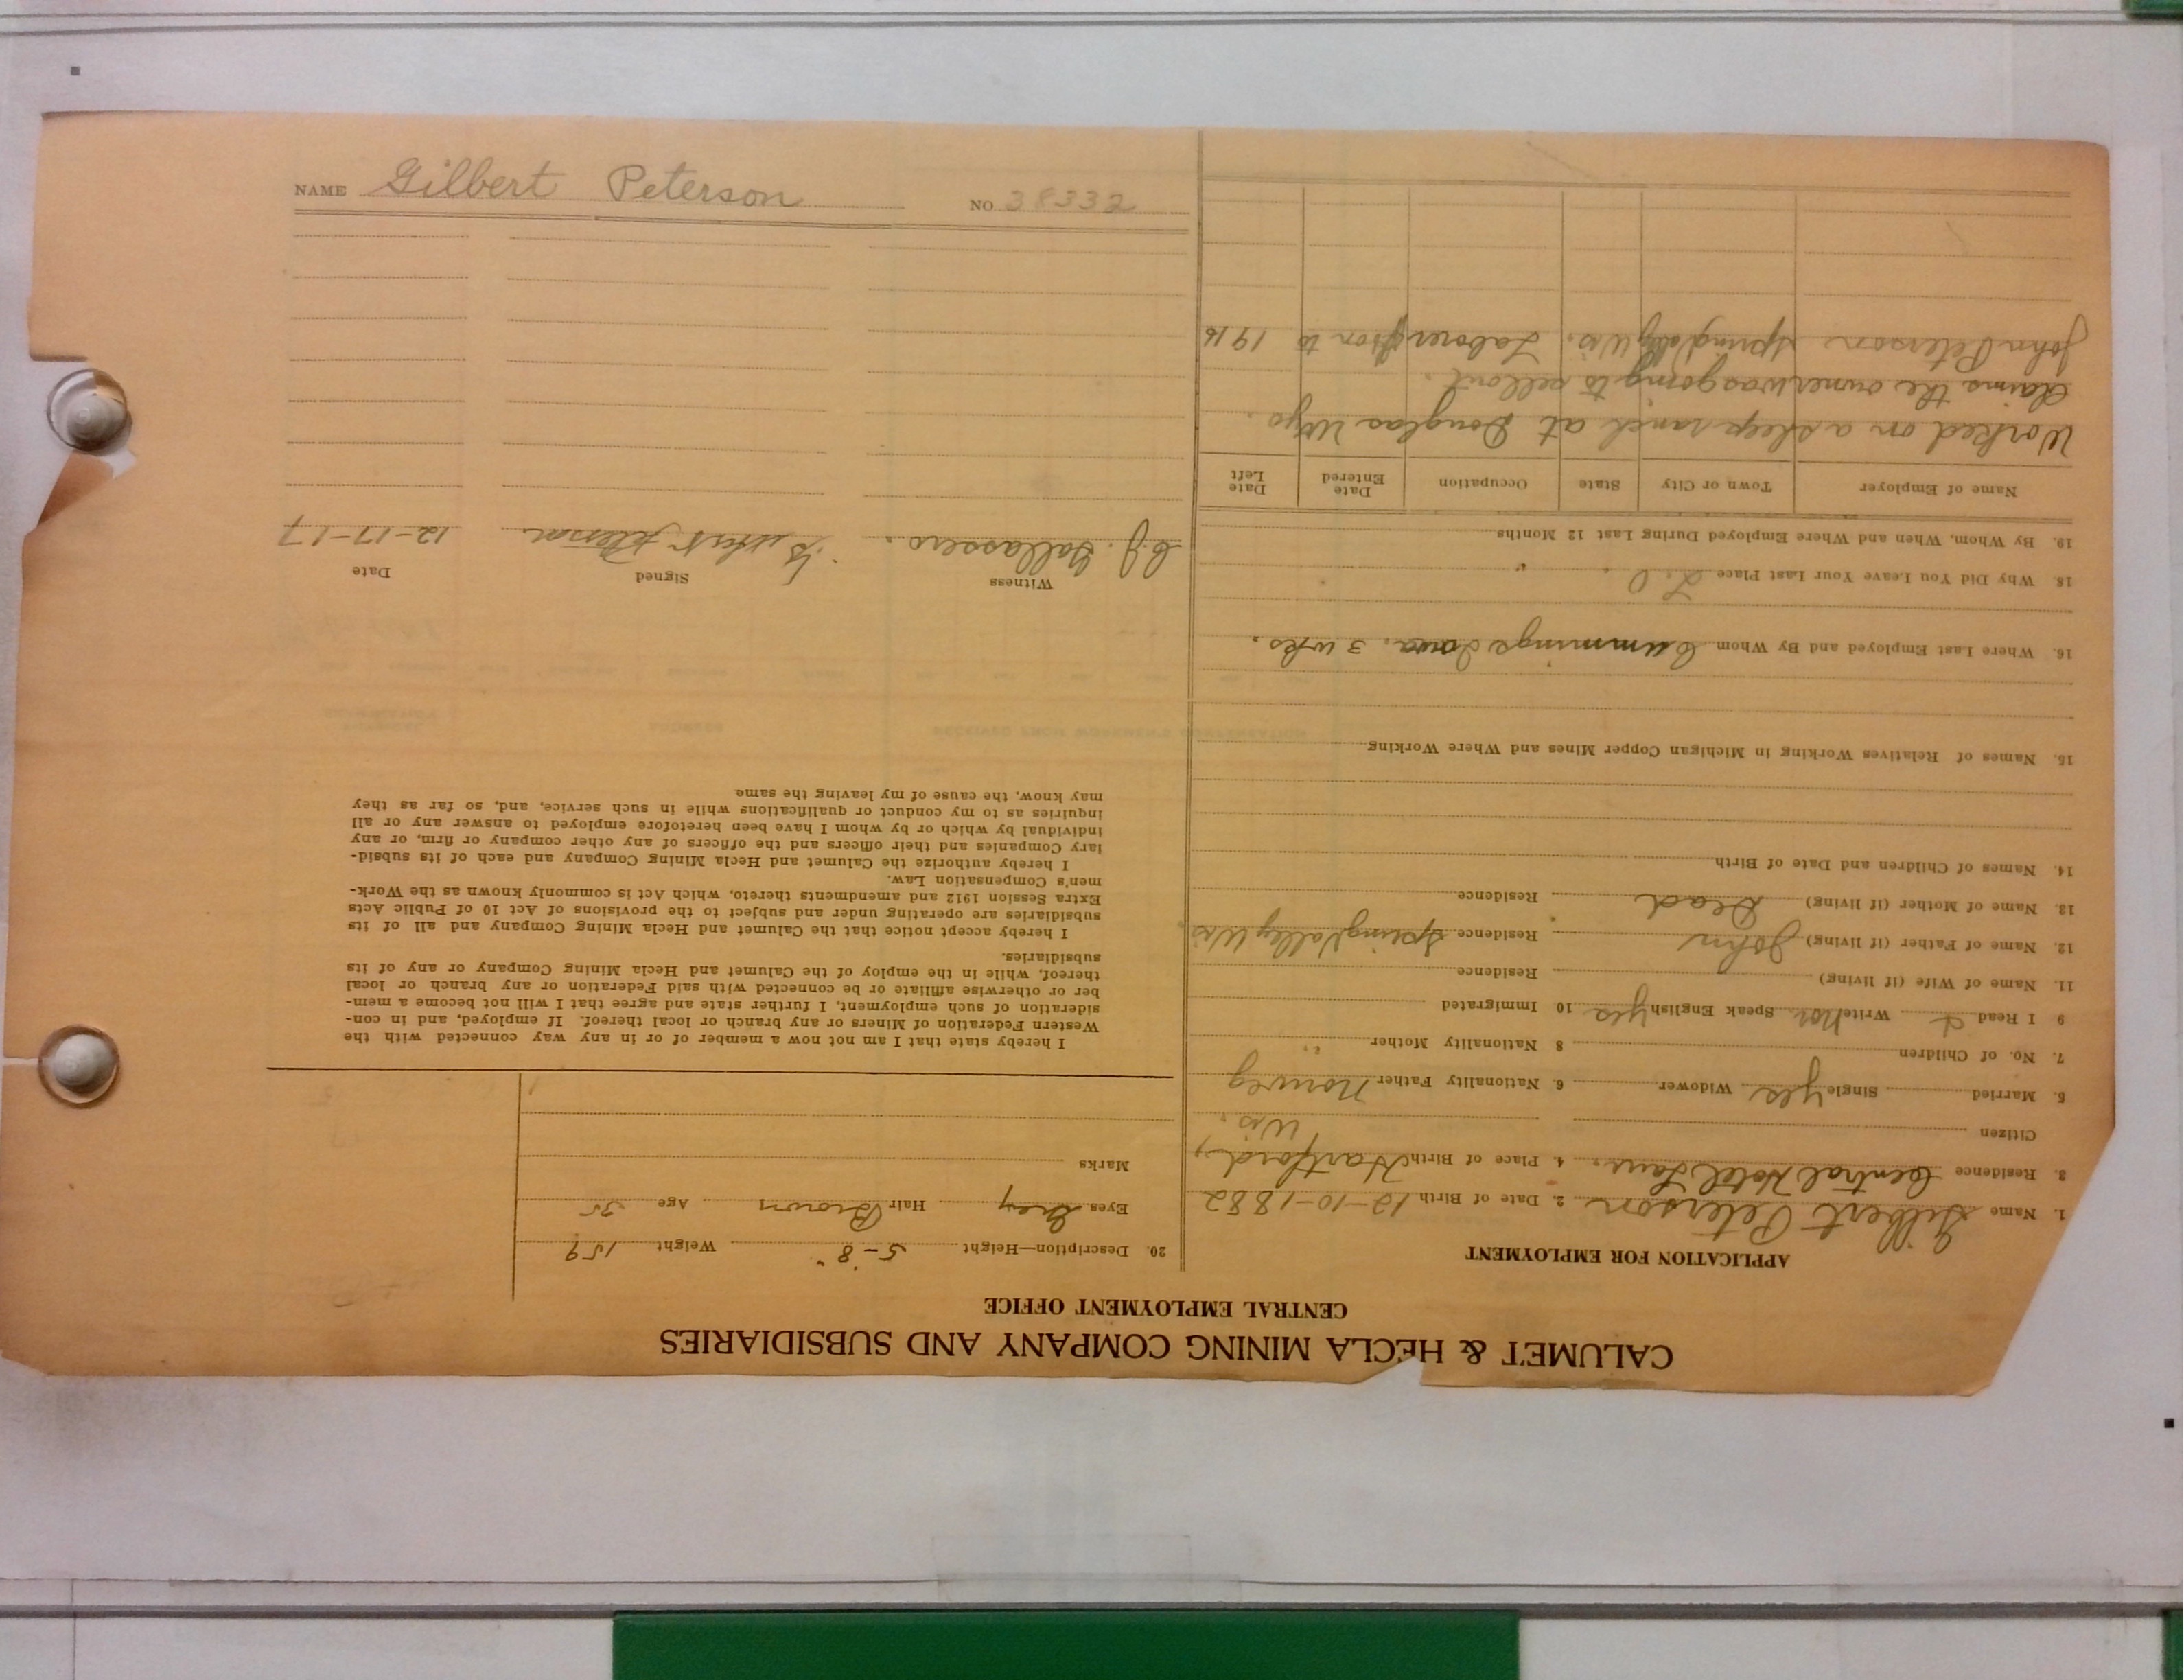 CALUMET & HECLA MINING COMPANY AND SUBSIDIARIES
CENTRAL EMPLOYMENT OFFICE
APPLICATION FOR EMPLOYMENT
1. Name Gilbert Peterson 2. Date of Birth 12-10-1882
3. Residence Central Hotel Laur. 4. Place of Birth Hartford,
Wis.
Citizen
5. Married Single yes Widower 6. Nationality Father Norweg
7. No. of Children 8 Nationality Mother "
9 I Read & Write Nor Speak English yes 10 Immigrated
11. Name of Wife (if living) Residence
12. Name of Father (if living) John Residence Spring Valley Wis.
13. Name of Mother (if living) Dead Residence
14. Names of Children and Date of Birth
15. Names of Relatives Working in Michigan Copper Mines and Where Working
16. Where Last Employed and By Whom Cummings Iowa. 3 wks.
18. Why Did You Leave Your Last Place L.O
19. By Whom, When and Where Employed During Last 12 Months
Name of Employer Town or City State Occupation Date Entered Date Left
Worked on a sheep ranch at Douglas Wyo.
Claims the owner was going to sell out.
John Peterson Spring Valley Wis. Laborer to 1916
20. Description—Height 5-8" Weight 159
Eyes Grey Hair Brown Age 35
Marks
I hereby state that I am not now a member of or in any way connected with the
Western Federation of Miners or any branch or local thereof. If employed, and in con-
sideration of such employment, I further state and agree that I will not become a mem-
ber or otherwise affiliate or be connected with said Federation or any branch or local
thereof, while in the employ of the Calumet and Hecla Mining Company or any of its
subsidiaries.
I hereby accept notice that the Calumet and Hecla Mining Company and all of its
subsidiaries are operating under and subject to the provisions of Act 10 of Public Acts
Extra Session 1912 and amendments thereto, which Act is commonly known as the Work-
men's Compensation Law.
I hereby authorize the Calumet and Hecla Mining Company and each of its subsid-
iary Companies and their officers and the officers of any other company or firm, or any
individual by which or by whom I have been heretofore employed to answer any or all
inquiries as to my conduct or qualifications while in such service, and, so far as they
may know, the cause of my leaving the same
Witness Signed Date
C.J. Gallassero. Gilbert Peterson 12-17-17
NAME Gilbert Peterson NO 38332